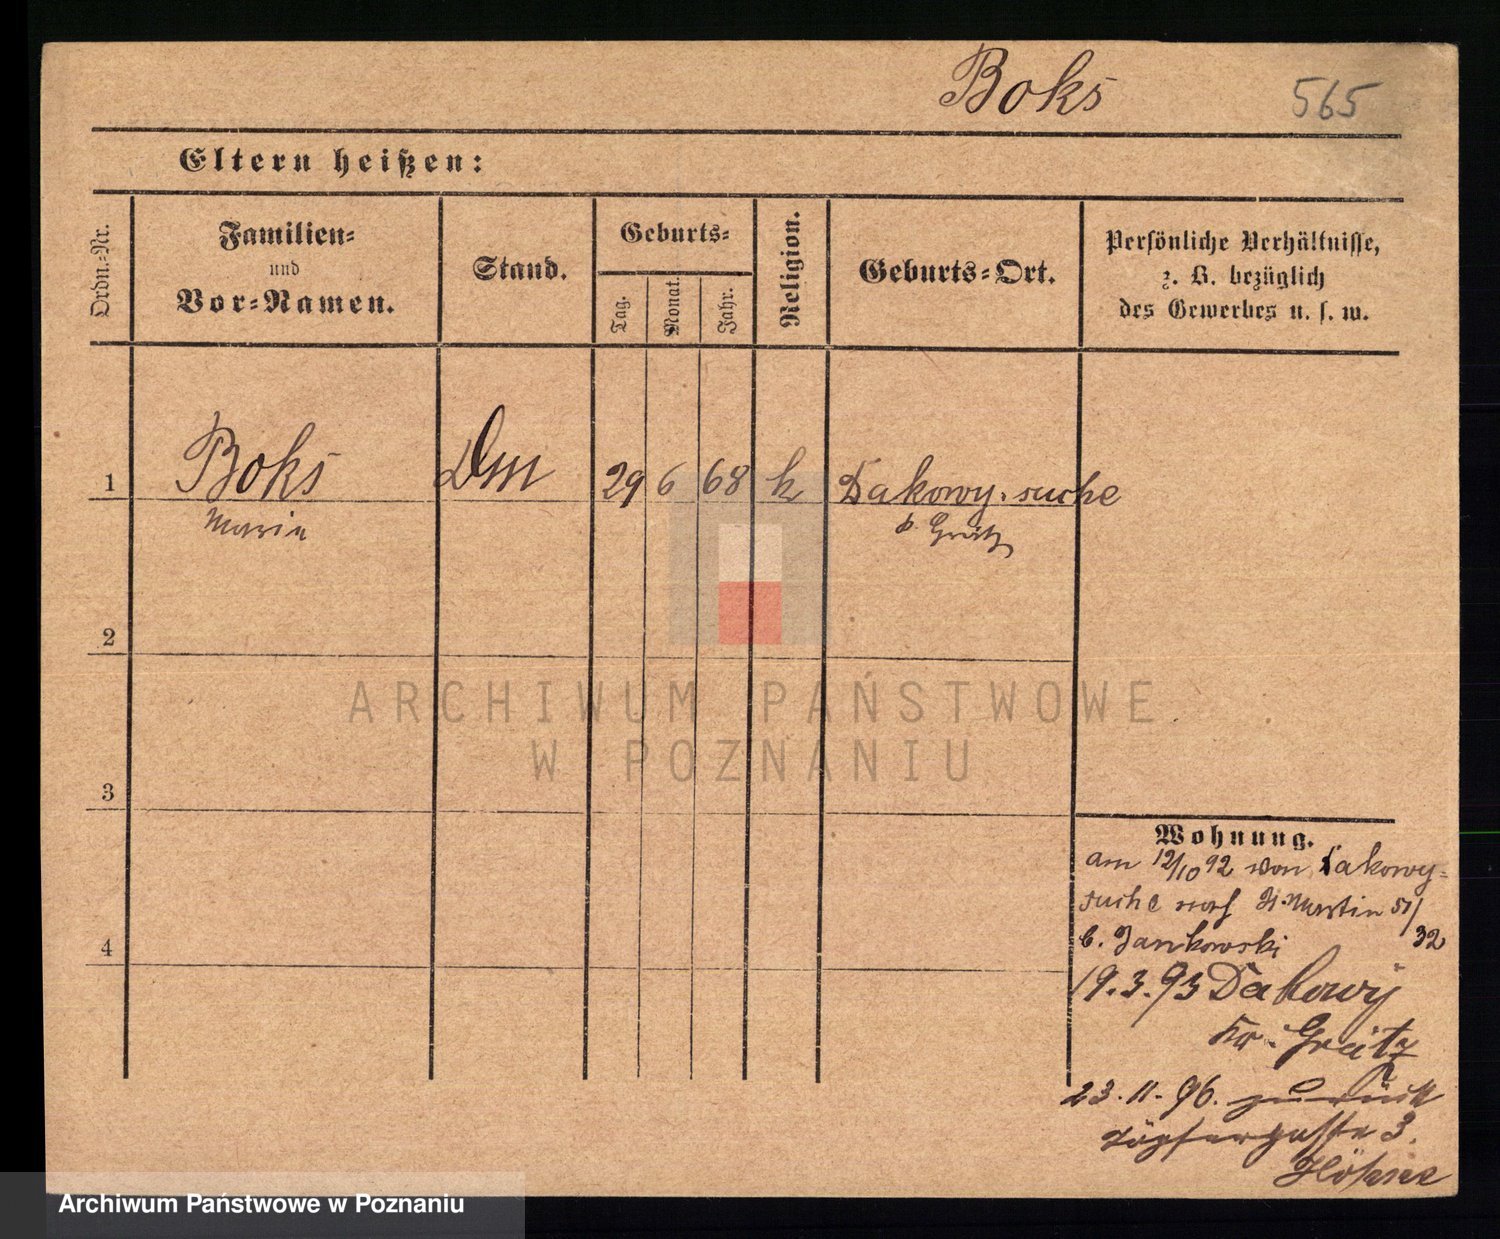 Boks 565
Eltern heißen:
Ordn.-Nr.
Familien-
und
Vor-Namen.
Stand.
Geburts-
Tag.
Monat.
Jahr.
Religion.
Geburts-Ort.
Persönliche Verhältnisse,
z. B. bezüglich
des Gewerbes u. s. w.
1 Boks Dm 29 6 68 k Dakowy-suche
Marie b. Grätz
2
3
4
Wohnung.
am 12/10 92 von Dakowy-
suche nach St. Martin 51/
32
b. Jankowski
19.3.93 Dakowy
Kr. Grätz
23.11.96. zurück
Töpfergasse 3.
Höhne
ARCHIWUM PAŃSTWOWE
W POZNANIU
Archiwum Państwowe w Poznaniu